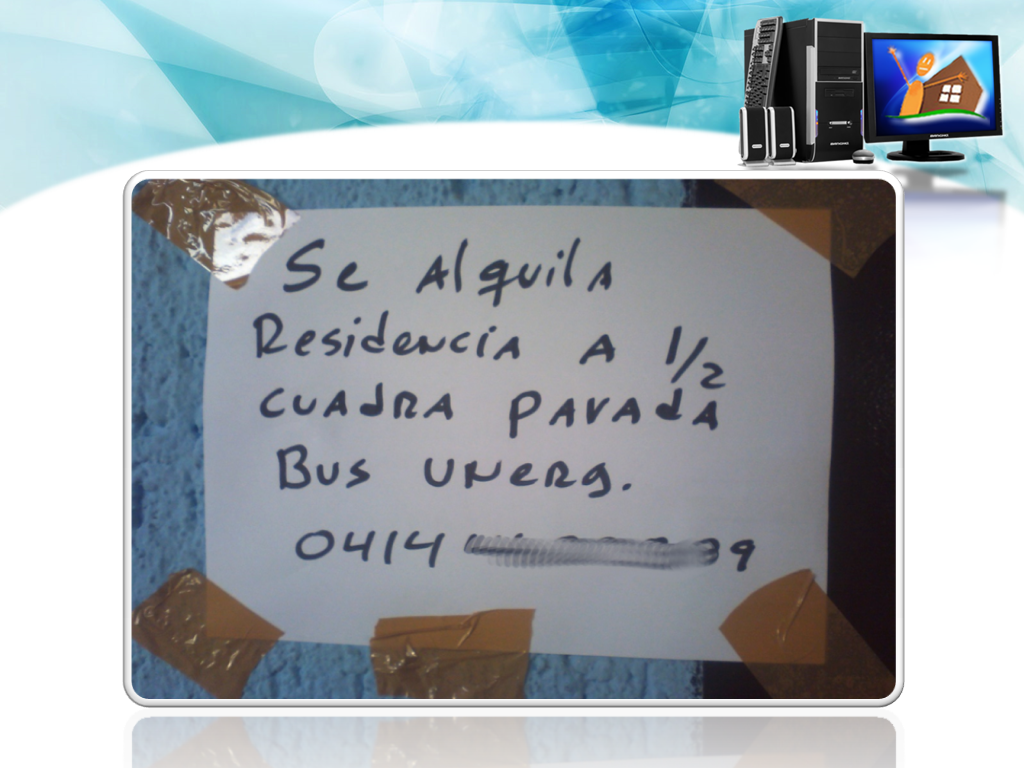 Se Alquila
Residencia A 1/2
cuadra parada
Bus Unerg.
0414 39